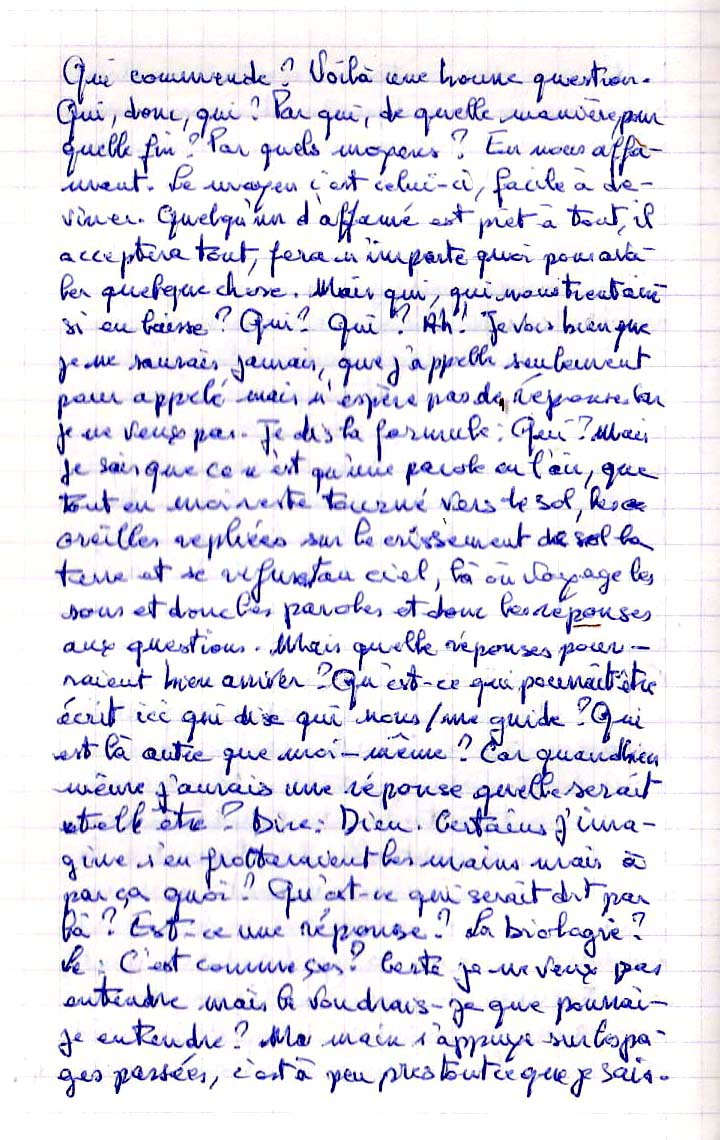 Qui commende? Voilà une bonne question.
Qui, donc, qui? Par qui, de quelle manière, pour
quelle fin? Par quels moyens? En nous affa-
mant. Le moyen c'est celui-ci, facile à de-
viner. Quelqu'un d'affamé est prêt à tout, il
acceptera tout, fera n'importe quoi pour ava-
ler quelque chose. Mais qui, qui nous tient ainsi
si en laisse? Qui? Qui? Ah! Je vois bien que
je ne saurais jamais, que j'appelle seulement
pour appelé mais n'espère pas de réponse. Car
je ne veux pas. Je dis la formule: Qui? Mais
je sais que ce n'est qu'une parole en l'air, que
tout en moi reste tourné vers le sol, les
oreilles repliées sur le crissement de sol la
terre et se refusent au ciel, là où voyage les
sons et donc les paroles et donc les réponses
aux questions. Mais quelle réponses pour-
raient bien arriver? Qu'est-ce qui pourrait être
écrit ici qui dise qui nous/me guide? Qui
est là autre que moi-même? Car quand bien
même j'aurais une réponse quelle serait
être? Dire: Dieu. Certains j'ima-
gine s'en frotteraient les mains mais à
par ça quoi? Qu'est-ce qui serait dit par
là? Est-ce une réponse? La biologie?
Le: C'est comme ça? Certe je ne veux pas
entendre mais le voudrais-je que pourrai-
je entendre? Ma main s'appuye sur les pa-
ges passées, c'est à peu près tout ce que je sais.